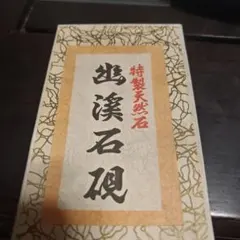 特製天然石
幽溪石硯